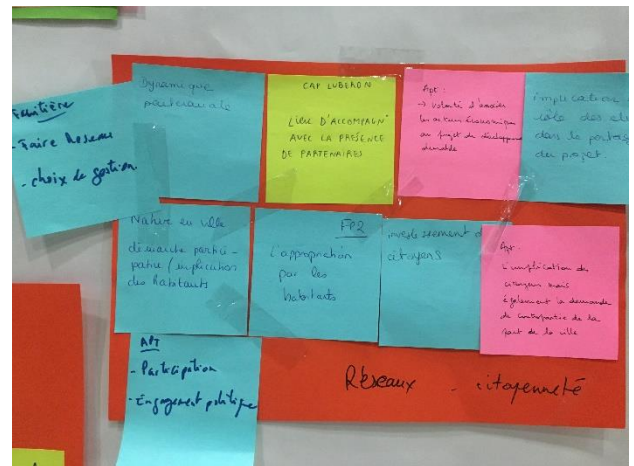 - Faire Reseau
- choix de gestion
Dynamique
partenariale
CAP LUBERON
LIEU D'ACCOMPAGNT
AVEC LA PRÉSENCE
DE PARTENAIRES
Apt :
→ volonté d'associer
les acteurs économiques
au projet de développement
durable
implication
rôle des él
dans le portage
du projet.
Nature en ville
démarche partici-
pative / implication
des habitants
FP2
L'appropriation
par les
habitants
investissement d
citoyens
Apt.
L'implication des
citoyens mais
également la demande
de contrepartie de la
part de la ville
APT
- Participation
- Engagement politique
Réseaux - citoyenneté